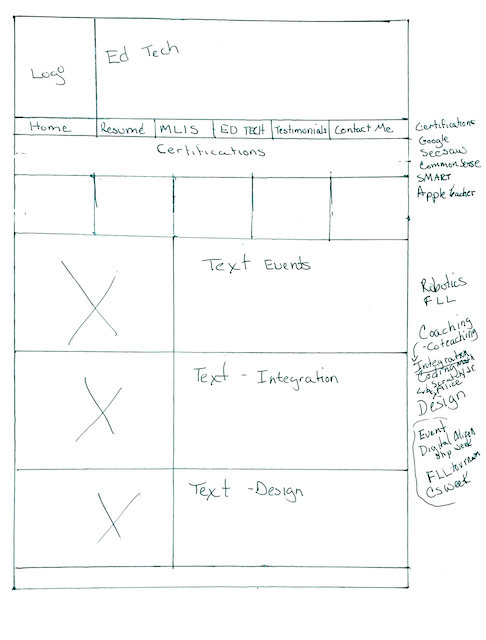 Logo
Ed Tech
Home
Resumé
MLIS
ED TECH
Testimonials
Contact Me
Certifications
Text Events
Text - Integration
Text - Design
Certifications
Google
Seesaw
Common Sense
SMART
Apple teacher
Robotics
FLL
Coaching
- Coteaching
Integration
Coding
Scratch Jr.
Alice
Design
Event
Digital Citizen
ship week
FLL
CS week